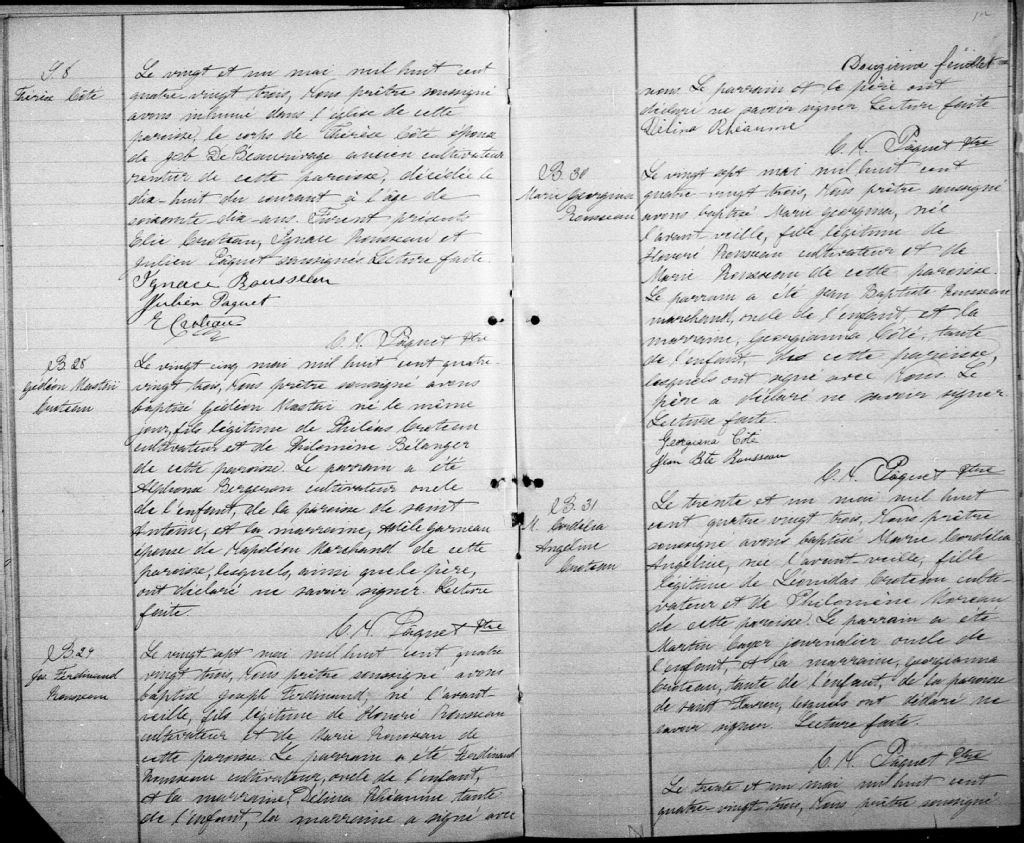 S. 8
Thérèse Côté
Le vingt et un mai mil huit cent
quatre-vingt trois, Nous prêtre soussigné
avons inhumé dans l'église de cette
paroisse, le corps de Thérèse Côté épouse
de Job De Beaurivage ancien cultivateur
rentier de cette paroisse, décédée le
dix-huit du courant à l'âge de
soixante dix ans. Furent présents
Elie Croteau, Ignace Rousseau et
Julien Paquet soussignés Lecture faite.
Ignace Rousseau
Julien Paquet
E Croteau
Paquet Ptre
B. 28
Gédéon
Croteau
Le vingt cinq mai mil huit cent quatre-
vingt trois, Nous prêtre soussigné avons
baptisé Gédéon né le même
jour, fils légitime de Philias Croteau
cultivateur et de Philomène Bélanger
de cette paroisse. Le parrain a été
Alphonse Bergeron cultivateur oncle
de l'enfant, de la paroisse de saint
Antoine, et la marraine, Adèle Garneau
épouse de Napoléon Marchand de cette
paroisse, lesquels, ainsi que le père,
ont déclaré ne savoir signer. Lecture
faite.
Paquet Ptre
B. 29
Jos. Ferdinand
Rousseau
Le vingt sept mai mil huit cent quatre
vingt trois, Nous prêtre soussigné avons
baptisé Joseph Ferdinand, né l'avant
veille, fils légitime de Honoré Rousseau
cultivateur et de Marie Rousseau de
cette paroisse. Le parrain a été Ferdinand
Rousseau cultivateur, oncle de l'enfant,
et la marraine, Délina Rhéaume tante
de l'enfant, la marraine a signé avec
Douzième feuillet
nous. Le parrain et le père ont
déclaré ne savoir signer Lecture faite
Délina Rhéaume
Paquet Ptre
B. 30
Marie Georgina
Rousseau
Le vingt sept mai mil huit cent
quatre vingt trois, Nous prêtre soussigné
avons baptisé Marie Georgina, née
l'avant veille, fille légitime de
Honoré Rousseau cultivateur et de
Marie Rousseau de cette paroisse.
Le parrain a été Jean Baptiste Rousseau
marchand, oncle de l'enfant et la
marraine, Georgianna Côté, tante
de l'enfant cette paroisse,
lesquels ont signé avec Nous. Le
père a déclaré ne savoir signer
Lecture faite.
Georgiana Côté
Jean Bte Rousseau
Paquet Ptre
B. 31
M. Cordelia
Angeline
Croteau
Le trente et un mai mil huit
cent quatre vingt trois, Nous prêtre
soussigné avons baptisé Marie Cordélia
Angéline, née l'avant veille, fille
légitime de Léonidas Croteau culti-
vateur et de Philomène Moreau
de cette paroisse. Le parrain a été
Martin journalier oncle de
l'enfant, et la marraine, Georgianna
Croteau, tante de l'enfant, de la paroisse
de saint Flavien, lesquels ont déclaré ne
savoir signer Lecture faite.
Paquet Ptre
Le trente et un mai mil huit cent
quatre-vingt trois, Nous prêtre soussigné